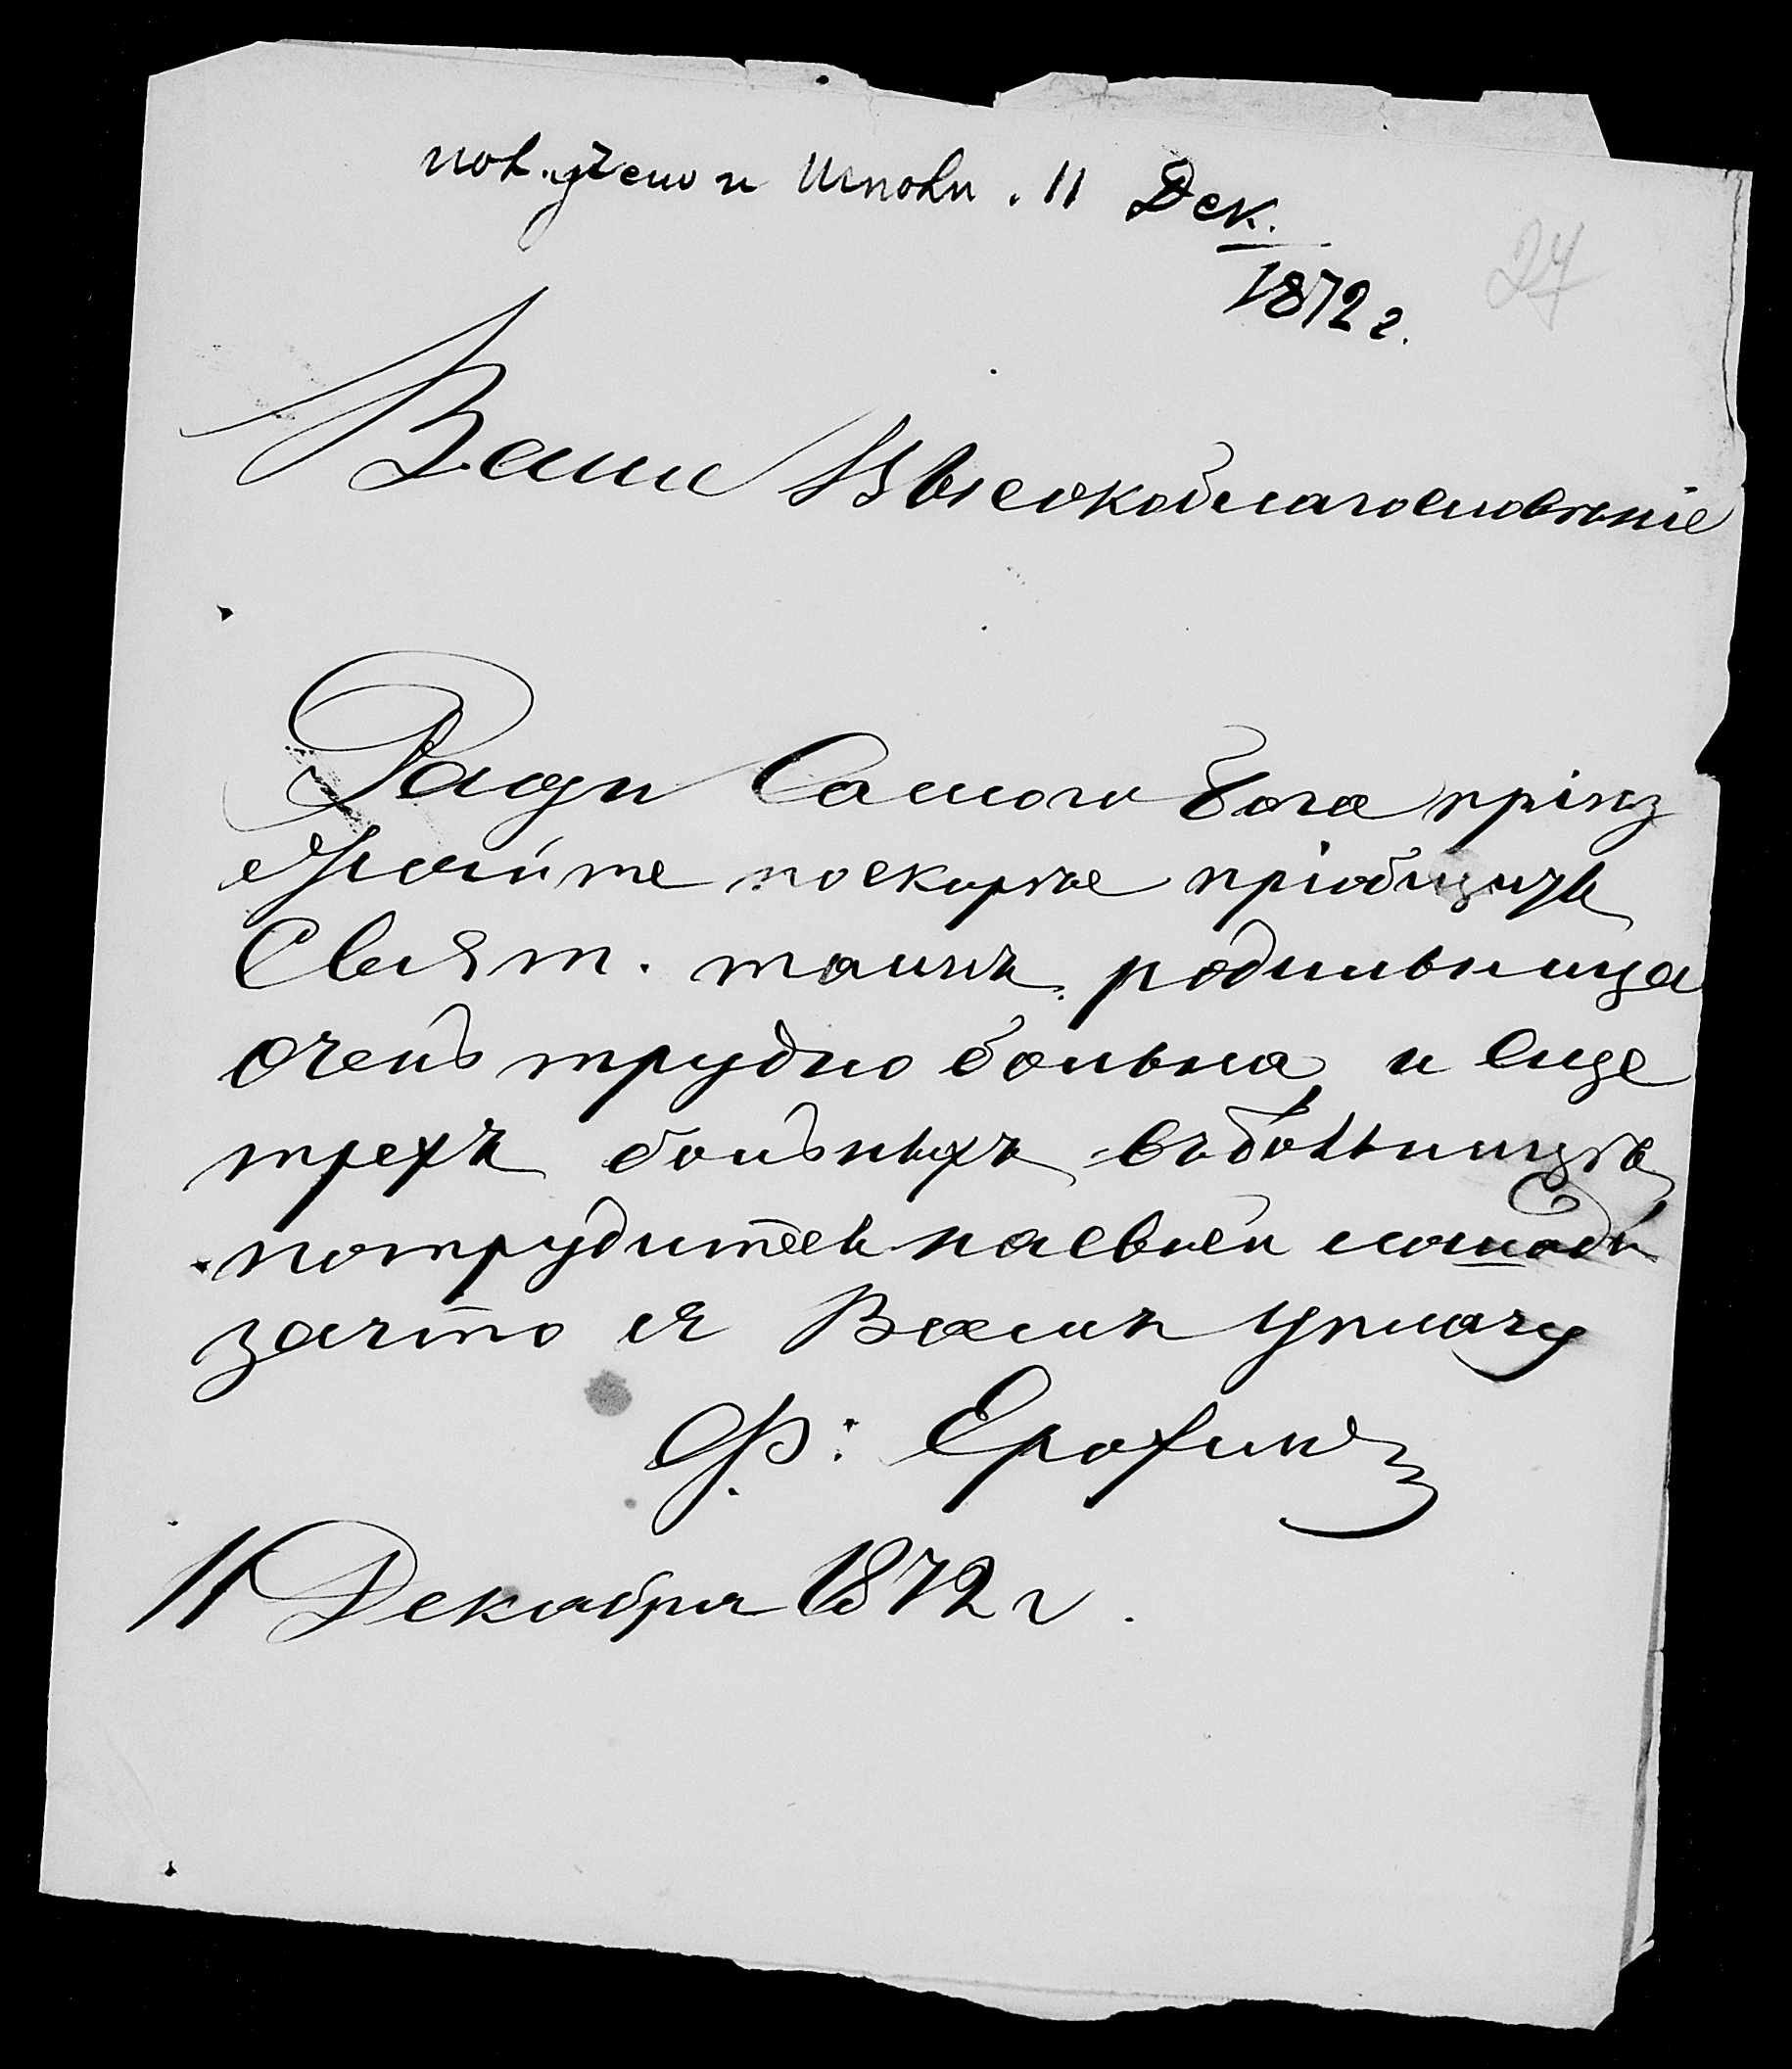 получено и исполн. 11 Дек.
1872 г.
24
Ваше Высокоблагословеніе
Ради Самого Бога пріез
жайте поскорѣе пріобщить
Свят. таинъ родильница
очень трудно больна, и еще
трехъ больныхъ въ больницѣ
потрудитесь насвоей лошади
зачто я Вамъ уплачу
Ф: Ерофинъ
11 Декабря 1872 г.